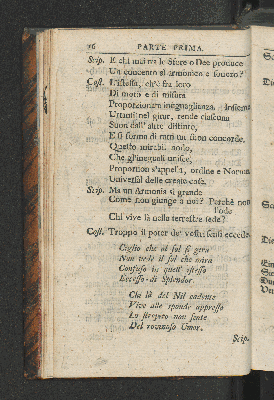 16 PARTE PRIMA.
Scip. E chi mai tra le Sfere o Dee produce
Un concento sì armonico e sonoro?
Cost. L'istessa, ch'è fra loro
Di moto e di misura
Proporzionata ineguaglianza. Insieme
Urtansi nel girar, rende ciascuna
Suon dall' altre distinto,
E si forma di tutti un suon concorde.
Questo mirabil nodo,
Che gl'ineguali unisce,
Proportion s'appella, ordine e Norma
Universal delle create cose.
Scip. Ma un Armonia sì grande
Come non giunge a noi? Perchè non
l'ode
Chi vive là nella terrestre sede?
Cost. Troppo il poter de' vostri sensi eccede.
Ciglio che al sol si gira
Non vede il sol che mira
Confuso in quell' istesso
Eccesso di Splendor.
Chi là del Nil cadente
Vive alle sponde appresso
Lo strepito non sente
Del rovinoso Umor.
Scip.